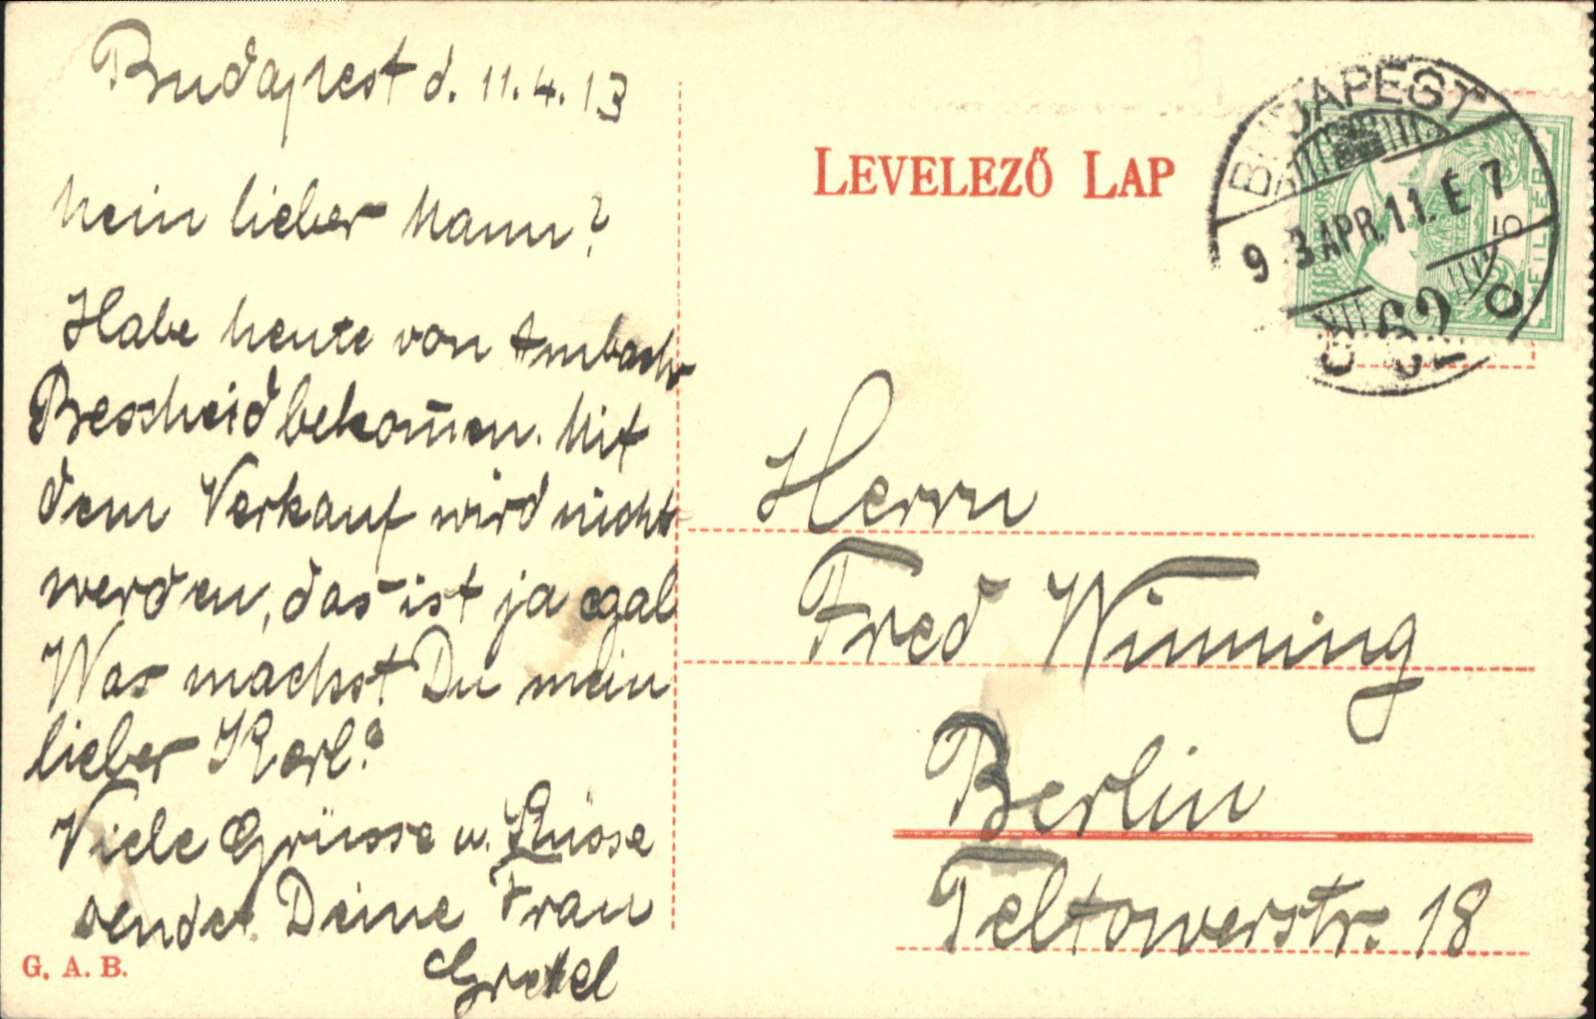 Budapest d. 11.4.13
Mein lieber Mann?
Habe heute von Ambach
Bescheid bekom̄en. Mit
dem Verkauf wird nichts
werden, das ist ja egal
Was machst Du mein
lieber Karl?
Viele Grüsse u. Küsse
sendet Deine Frau
Gretel
G. A. B.
LEVELEZŐ LAP
BUDAPEST
9 3 APR. 11. É 7
62
5
FILLÉR
Herrn
Fred Winning
Berlin
Teltowerstr. 18